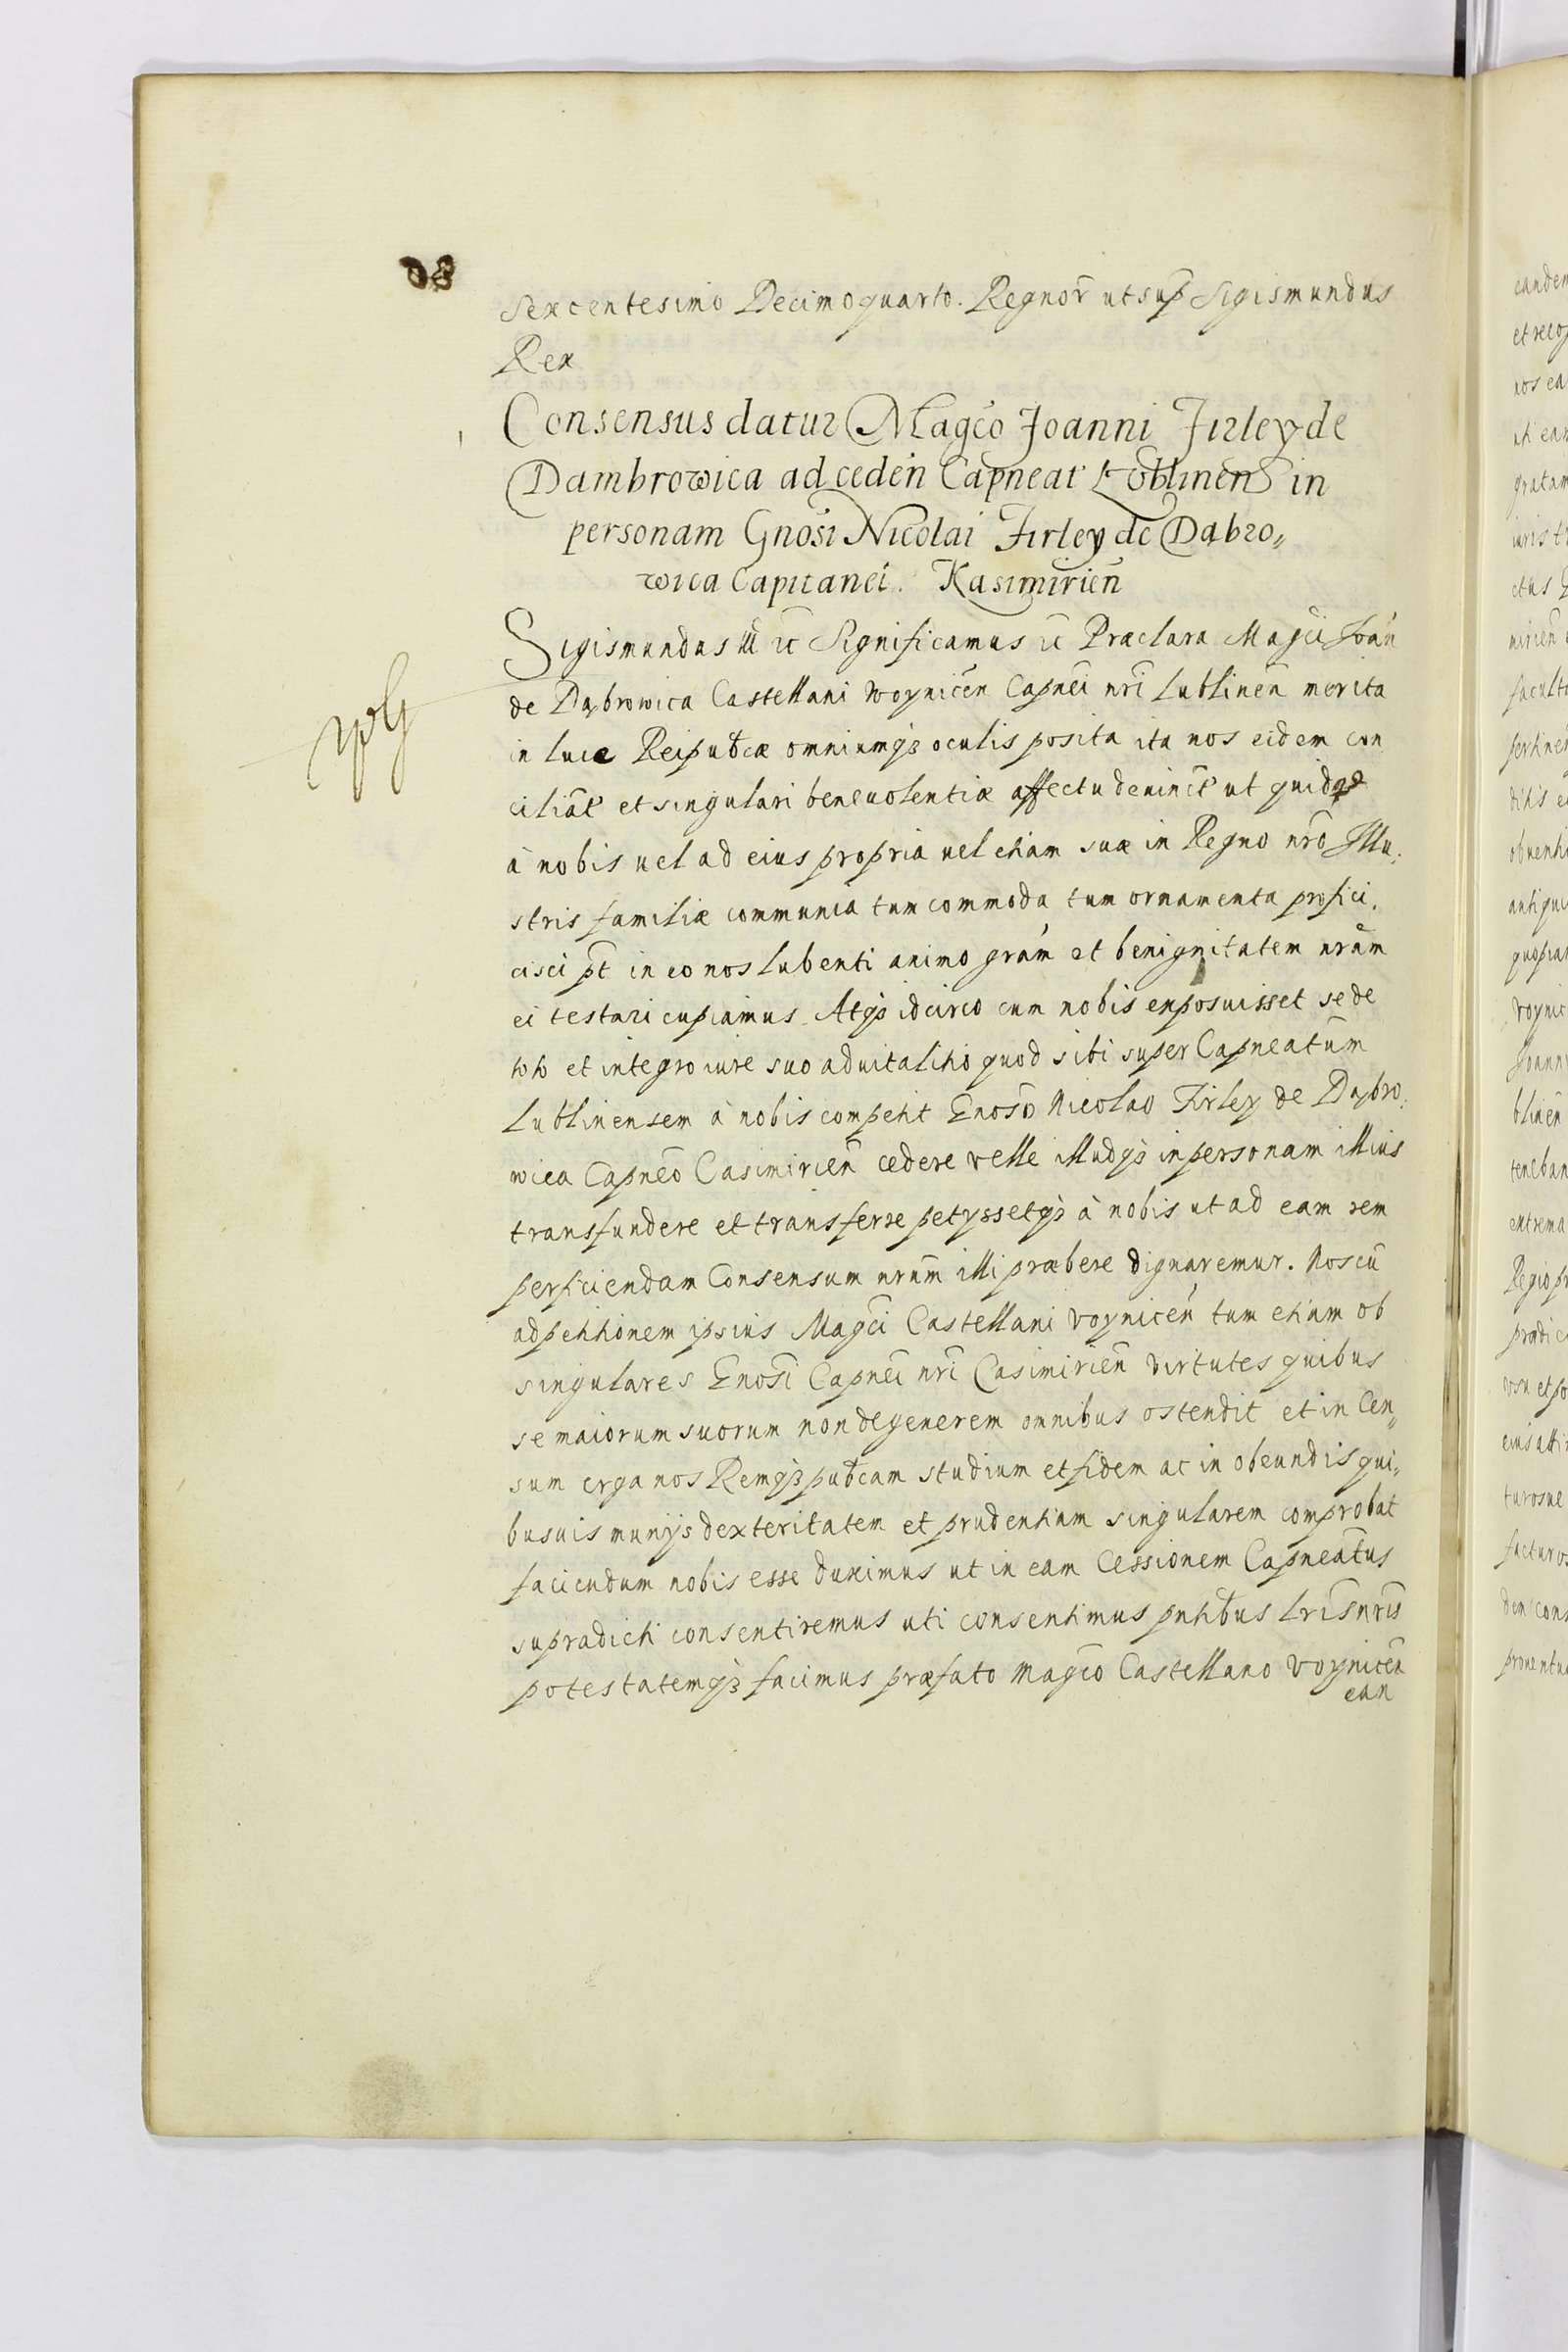 Sexcentesimo Decimo quarto. Regnor̃ ut sup̃ Sigismundus
Rex
Consensus datur Magc̃o Joanni Firley de
Dambrowica ad ceden̄ Capneat̃ Lublinen̄ in
personam Gnosi Nicolai Firley de Dąbro„
wica Capitanei. Kasimirien̄
Sigismundus III etc̃ Significamus etc̃ Praeclara Magc̃i Joan̄
de Dąbrowica Castellani Woynicen̄ Capnei nr̃i Lublinen̄ merita
in luce Reipub̃cæ omniumq3 oculis posita ita nos eidem con
ciliãt et singulari beneuolentiæ affectu deuinct̃ ut quidqd
à nobis uel ad eius propria uel etiam suæ in Regno nr̃o Illu:
stris familiæ communia tum commoda tum ornamenta profici.
cisci pt̃ in eo nos lubenti animo gram̃ et benignitatem nram̃
ei testari cupiamus. Atq3 idcirco cum nobis exposuisset se de
toto et integro iure suo aduitalitio quod sibi super Capneatum̃
Lublinensem à nobis competit Gnoso Nicolao Firley de Dąbro:
wica Capneo Casimirien̄ cedere velle illudq3 in personam illius
transfundere et transferre petyssetq3 à nobis ut ad eam rem
perficiendam Consensum nrum̃ illi præbere dignaremur. Nos cũ
ad petitionem ipsius Magc̃i Castellani Voynicen̄ tum etiam ob
singulares Gnosi Capnei nr̃i Casimirien̄ virtutes quibus
se maiorum suorum non degenerem omnibus ostendit et in Cen„
sum erga nos Remq3 pub̃cam studium et fidem ac in obeundis qui„
busuis munijs dexteritatem et prudentiam singularem comprobat
faciendum nobis esse duximus ut in eam Cessionem Capneatus̃
supradicti consentiremus uti consentimus pntibus̃ Lris̃ nris̃
potestatemq3 facimus præfato Magc̃o Castellano Voynicen̄
ean